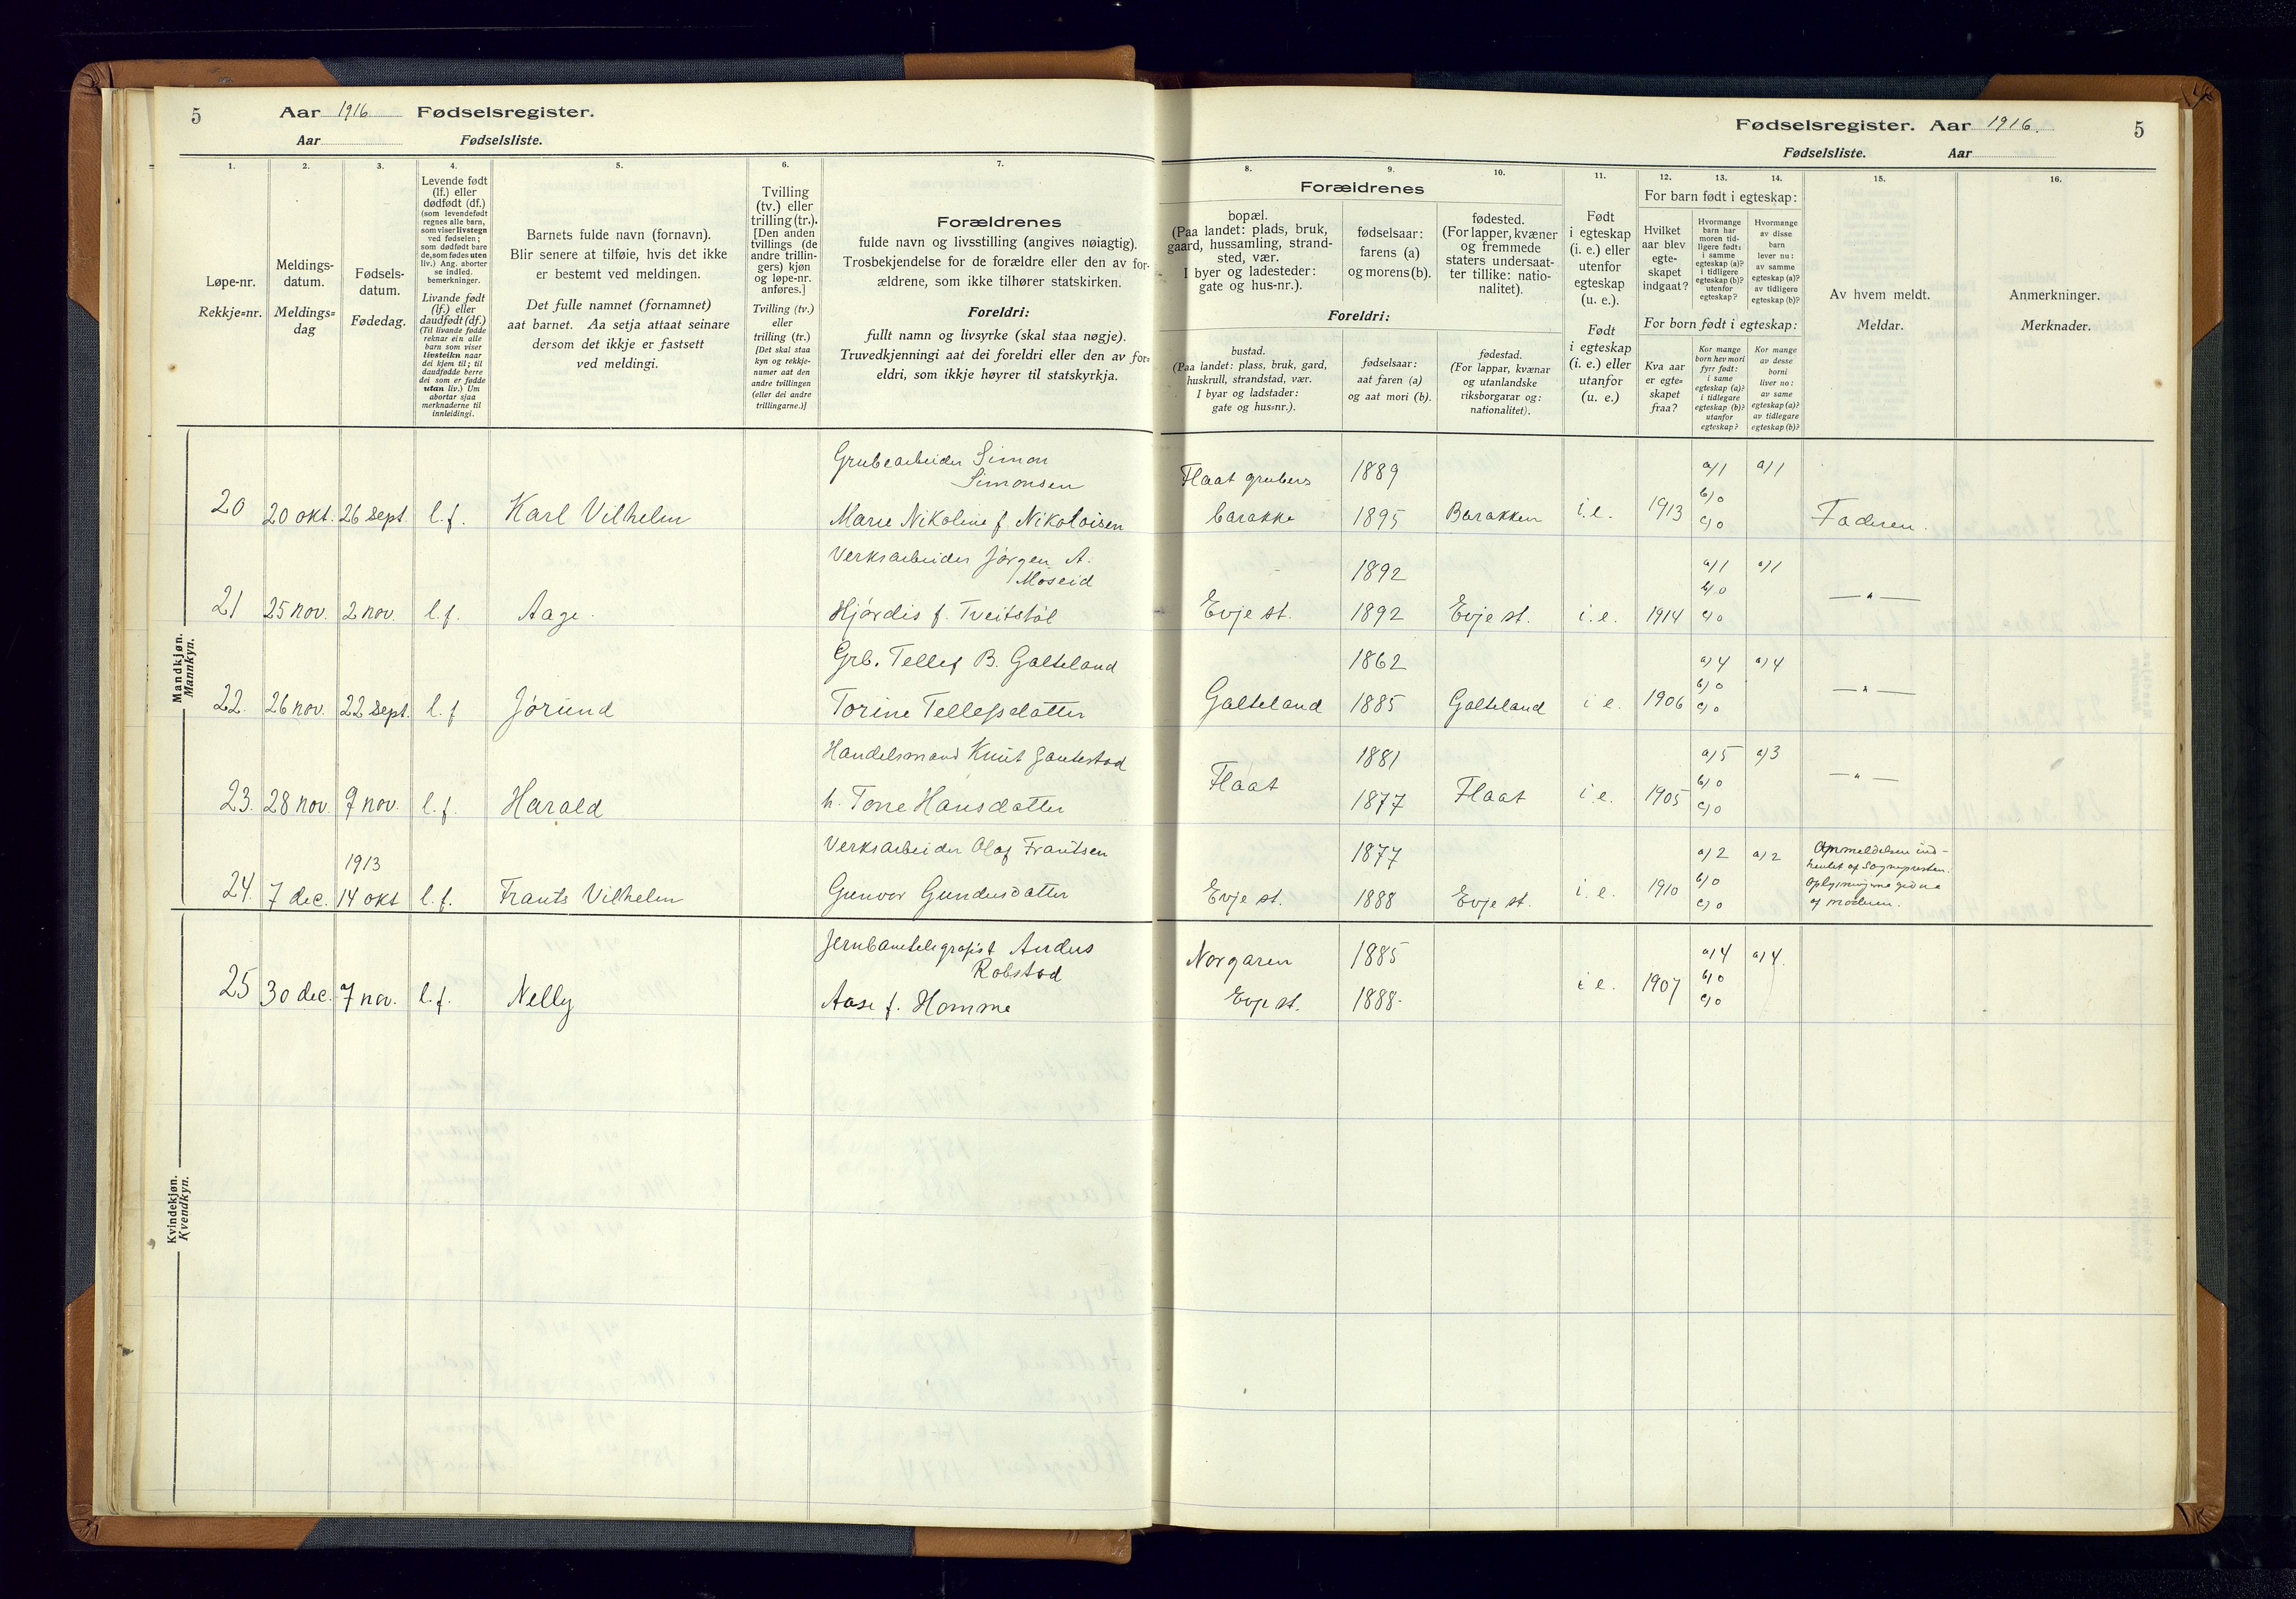 5
Aar 1916 Fødselsregister.
Aar Fødselsliste.
Fødselsregister. Aar 1916.
5
Fødselsliste. Aar
1. 2. 3. 4. 5. 6. 7.
Løpe-nr.
Rekkje=nr.
Meldings-
datum.
Meldings=
dag
Fødsels-
datum.
Fødedag.
Levende født
(lf.) eller
dødfødt (df.)
(som levendefødt
regnes alle barn,
som viser livstegn
ved fødselen;
som dødfødt bare
de, som fødes uten
liv.) Ang. aborter
se indled.
bemerkninger.
Livande født
(lf.) eller
daudfødt (df.)
(Til livande fødde
reknar ein alle
barn som viser
livsteikn naar
dei kjem til; til
daudfødde berre
dei som er fødde
utan liv.) Um
abortar sjaa
merknaderne til
innleidingi.
Barnets fulde navn (fornavn).
Blir senere at tilføie, hvis det ikke
er bestemt ved meldingen.
Det fulle namnet (fornamnet)
aat barnet. Aa setja attaat seinare
dersom det ikkje er fastsett
ved meldingi.
Tvilling
(tv.) eller
trilling (tr.).
[Den anden
tvillings (de
andre trillin-
gers) kjøn
og løpe-nr.
anføres.]
Tvilling (tv.)
eller
trilling (tr.)
[Det skal staa
kyn og rekkje-
numer aat den
andre tvillingen
(eller dei andre
trillingarne.)]
Forældrenes
fulde navn og livsstilling (angives nøiagtig).
Trosbekjendelse for de forældre eller den av for-
ældrene, som ikke tilhører statskirken.
Foreldri:
fullt namn og livsyrke (skal staa nøgje).
Truvedkjenningi aat dei foreldri eller den av for=
eldri, som ikkje høyrer til statskyrkja.
8. 9. 10. 11. 12. 13. 14. 15. 16.
Forældrenes
bopæl.
(Paa landet: plads, bruk,
gaard, hussamling, strand-
sted, vær.
I byer og ladesteder:
gate og hus-nr.).
fødselsaar:
farens (a)
og morens (b).
fødested.
(For lapper, kvæner
og fremmede
staters undersaat-
ter tillike: natio-
nalitet).
Foreldri:
bustad.
(Paa landet: plass, bruk, gard,
huskrull, strandstad, vær.
I byar og ladstader:
gate og hus=nr.).
fødselsaar:
aat faren (a)
og aat mori (b).
fødestad.
(For lappar, kvænar
og utanlandske
riksborgarar og:
nationalitet).
Født
i egteskap
(i. e.) eller
utenfor
egteskap
(u. e.).
Født
i egteskap
(i. e.) eller
utanfor
(u. e.)
For barn født i egteskap:
Hvilket
aar blev
egte-
skapet
indgaat?
Hvormange
barn har
moren tid-
ligere født:
i samme
egteskap (a)?
i tidligere
egteskap (b)?
utenfor
egteskap?
Hvormange
av disse
barn
lever nu:
av samme
egteskap (a)?
av tidligere
egteskap (b)?
For born født i egteskap:
Kva aar
er egte=
skapet
fraa?
Kor mange
born hev mori
fyrr født:
i same
egteskap (a)?
i tidlegare
egteskap (b)?
utanfor
egteskap?
Kor mange
av desse
borni
liver no:
av same
egteskap (a)?
av tidlegare
egteskap (b)?
Av hvem meldt.
Meldar.
Anmerkninger.
Merknader.
Mandkjøn.
Mannkyn.
Grubearbeider Simon
Simonsen
20 20 okt. 26 sept. l.f. Karl Vilhelm Marie Nikoline f. Nikolaisen
Flaat grubers 1889 a)1 a)1
b)0
barakke 1895 Barakken i.e. 1913 c)0 Faderen.
Verksarbeider Jørgen A.
Moseid
21 25 nov. 2 nov. l.f. Aage. Hjørdis f. Tveitstøl
1892 a)1 a)1
b)0
Evje st. 1892 Evje st. i.e. 1914 c)0 — " —
Grb. Tellef B. Galteland
22. 26 nov. 22 sept. l.f Jørund Torine Tellefsdatter
1862 a)4 a)4
b)0 — " —
Galteland 1885 Galteland i e. 1906 c)0
Handelsmand Knut Jautestad
23. 28 nov. 9 nov. l.f. Harald h. Tone Hansdatter
1881 a)5 a)3
Flaat b)0 — " —
1877 Flaat i e. 1905 c)0
1913 Verksarbeider Olaf Frantsen
24. 7 dec. 14 okt l.f. Frants Vilhelm Gunvor Gundersdatter
1877 a)2 a)2 Anmeldelsen ind-
hentet af Sognepresten.
b)0 Oplysningerne givne
Evje st. 1888 Evje st. i.e. 1910 c)0 af moderen.
Kvindekjøn.
Kvendkyn.
Jernbanetelegrafist Anders
Robstad
25 30 dec. 7 nov. l.f. Nelly Aase f. Homme
Norgaren 1885 a)4 a)4.
i e. 1907 b)0
Evje st. 1888. c)0